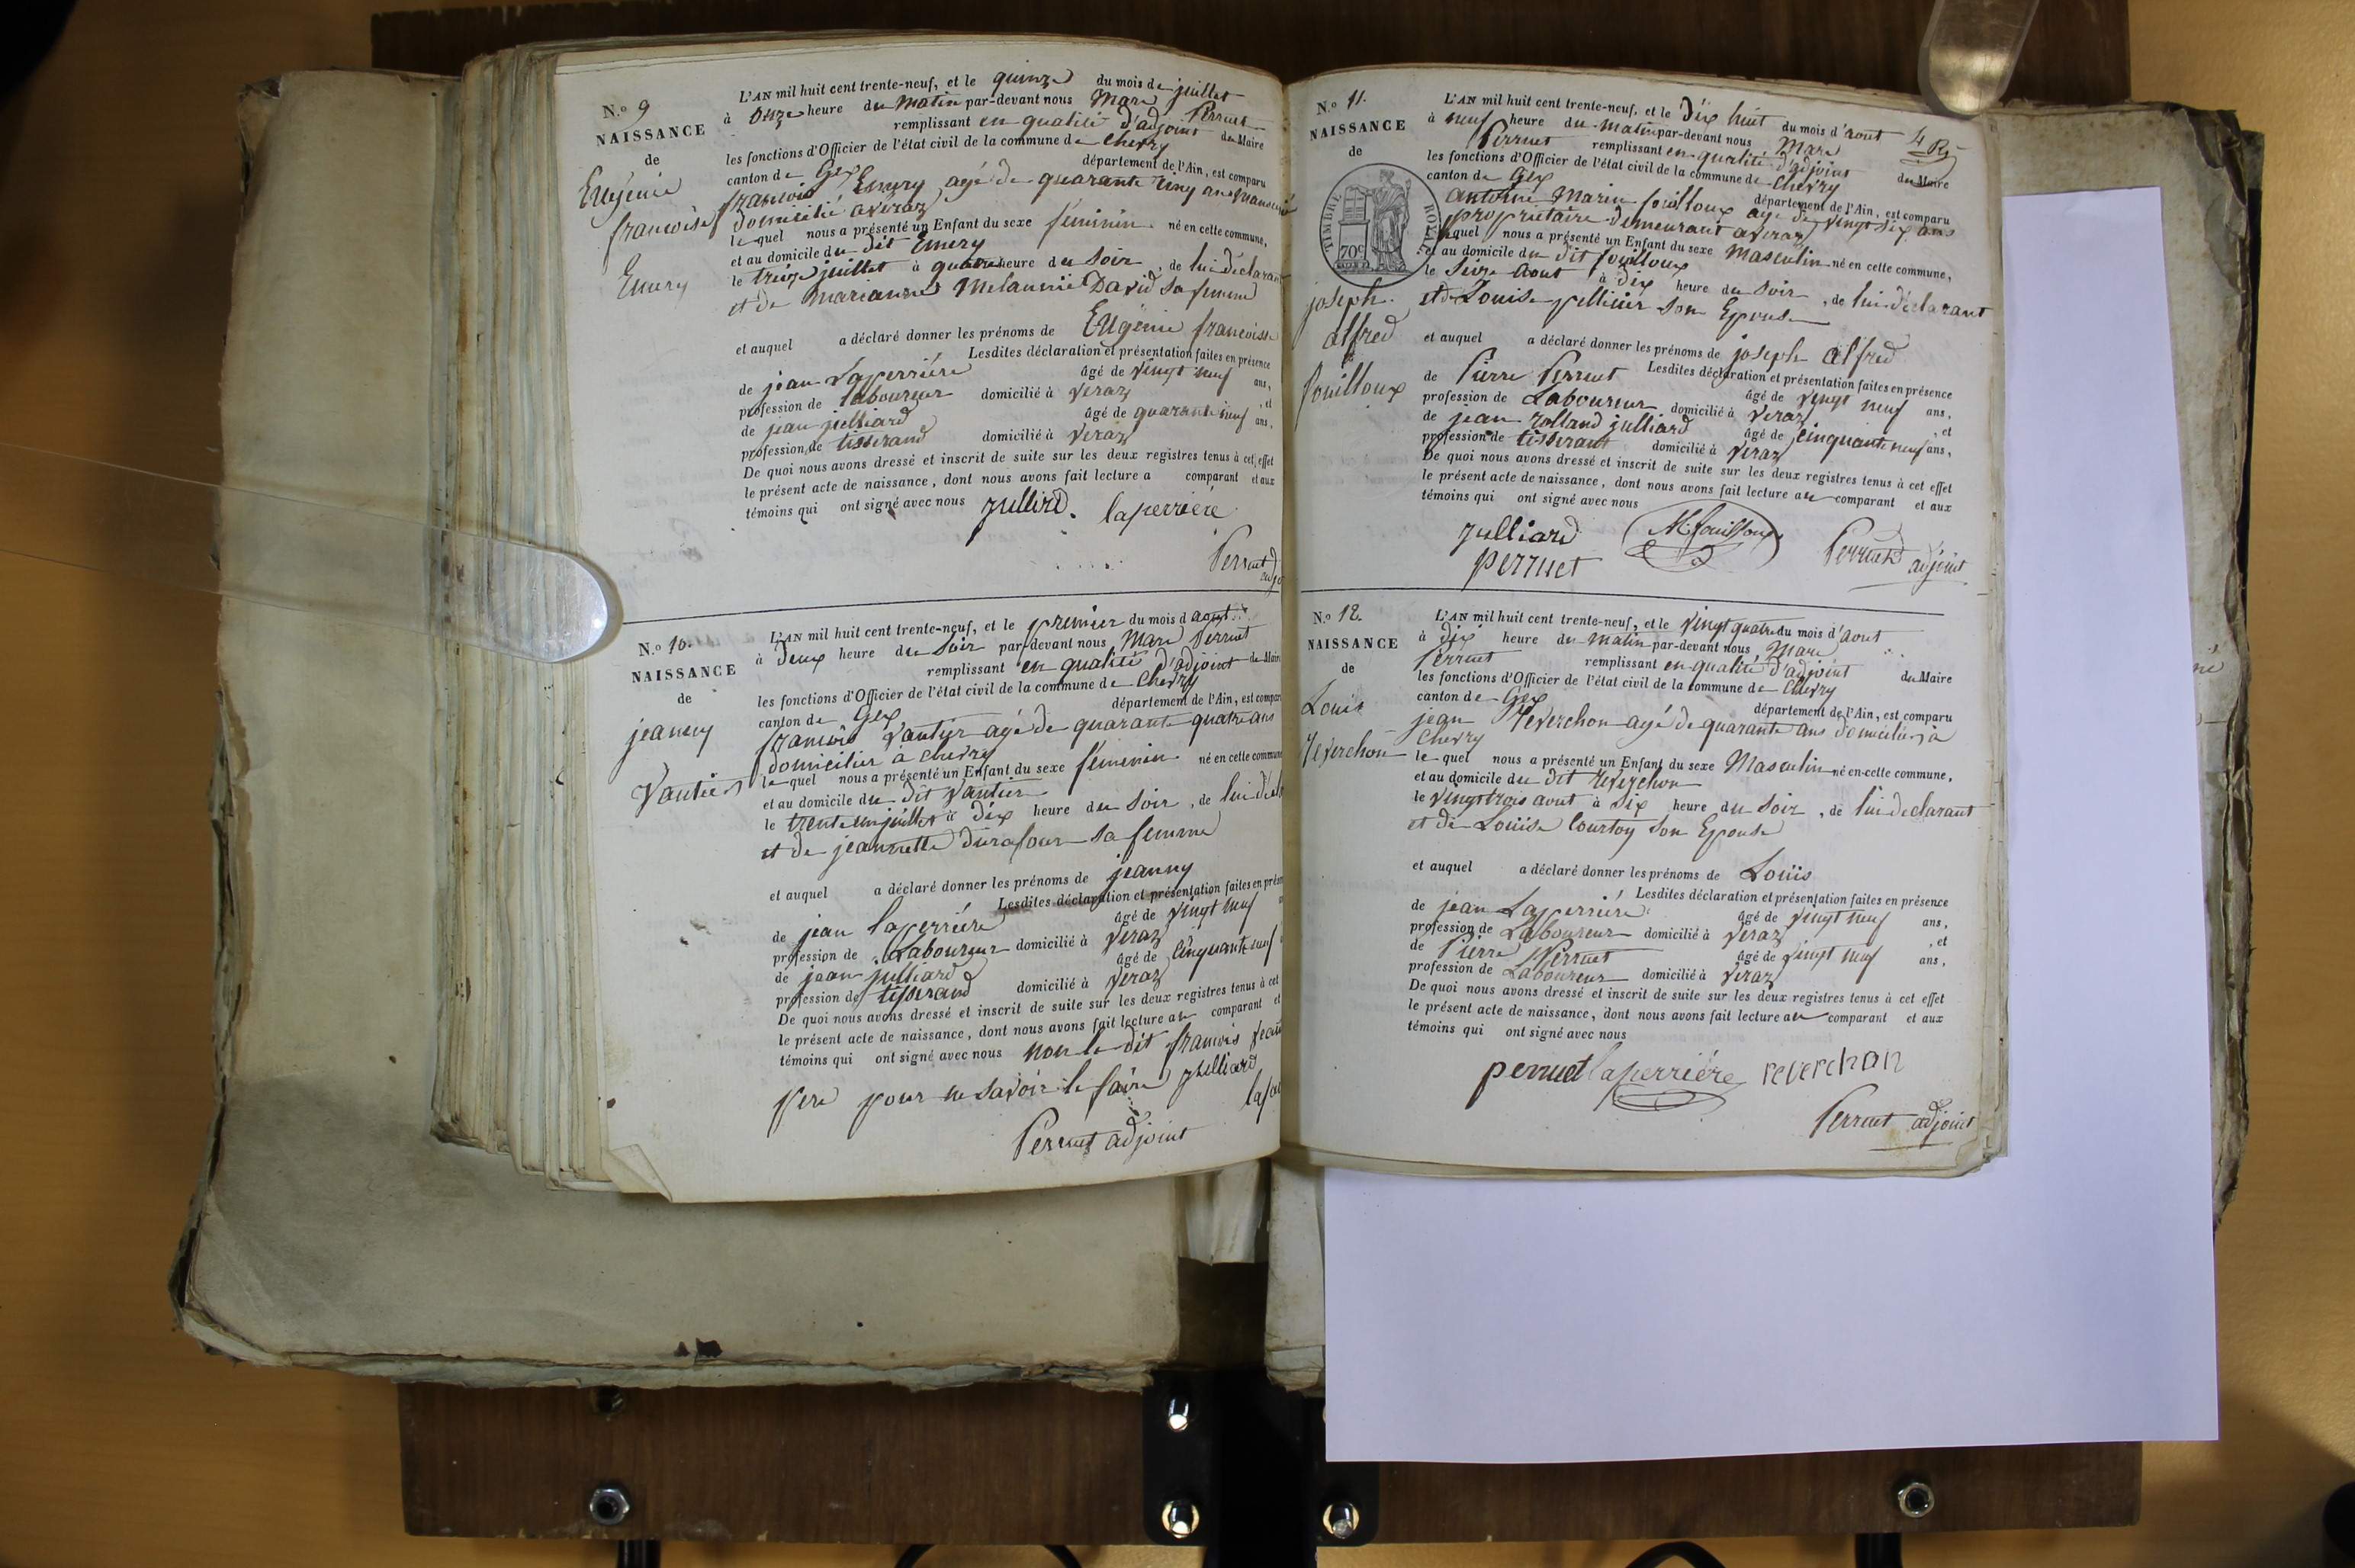 N.o 9
NAISSANCE
de
Eugénie
francoise
Emery
L'AN mil huit cent trente-neuf, et le quinze du mois de juillet
à Onze heure du matin par-devant nous Marc Perruet
remplissant en qualité d'adjoint du Maire
les fonctions d'Officier de l'état civil de la commune de Chevry
canton de Gex département de l'Ain, est comparu
francois Emery agé de quarante cinq ans
domicilié a véraz
le quel nous a présenté un Enfant du sexe féminin né en cette commune,
et au domicile du dit Emery
le treize juillet à quatre heure du soir, de lui déclarant
et de marianne Melannie David sa femme
et auquel a déclaré donner les prénoms de Eugénie francoise
Lesdites déclaration et présentation faites en présence
de jean Laperriére âgé de vingt neuf ans,
profession de laboureur domicilié à véraz, et
de jean julliard âgé de quarante neuf ans,
profession de tisserand domicilié à veraz
De quoi nous avons dressé et inscrit de suite sur les deux registres tenus à cet effet
le présent acte de naissance, dont nous avons fait lecture a comparant et aux
témoins qui ont signé avec nous
jullird. laperriére
Perruet
N.o 10.
NAISSANCE
de
jeanny
Vautier
L'AN mil huit cent trente-neuf, et le premier du mois d'aout
à deux heure du soir par-devant nous Marc Perruet
remplissant en qualité d'adjoint du Maire
les fonctions d'Officier de l'état civil de la commune de Chevry
canton de Gex département de l'Ain, est compar
francois Vautier agé de quarante quatre ans
domicilier à Chevry
le quel nous a présenté un Enfant du sexe féminin né en cette commune
et au domicile du dit Vautier
le trente un juillet à dix heure du soir, de lui décla
et de jeannette durafour sa femme
et auquel a déclaré donner les prénoms de jeanny
Lesdites déclaration et présentation faites en prése
de jean laperriére âgé de vingt neuf
profession de Laboureur domicilié à veraz
de jean julliard âgé de cinquante neuf
profession de tisserand domicilié à veraz
De quoi nous avons dressé et inscrit de suite sur les deux registres tenus à cet
le présent acte de naissance, dont nous avons fait lecture au comparant et
témoins qui ont signé avec nous non le dit francois
pere pour ne savoir le faire julliard
Perruet adjoint
N.o 11.
NAISSANCE
de
TIMBRE ROYAL
70c
joseph
alfred
fouilloux
L'AN mil huit cent trente-neuf, et le dix huit du mois d'aout
à neuf heure du matin par-devant nous Marc
Perruet remplissant en qualité d'adjoint du Maire
les fonctions d'Officier de l'état civil de la commune de Chevry
canton de Gex département de l'Ain, est comparu
antoine Marin fouilloux agé de vingt six ans
propriétaire demeurant a veraz
lequel nous a présenté un Enfant du sexe Masculin né en cette commune,
et au domicile du dit fouilloux
le seize aout à dix heure du soir, de lui déclarant
et de Louise pellicier son Epouse
et auquel a déclaré donner les prénoms de joseph alfred
Lesdites déclaration et présentation faites en présence
de Pierre Perruet âgé de vingt neuf ans,
profession de Laboureur domicilié à veraz, et
de jean rolland julliard âgé de cinquante neuf ans,
profession de tisserant domicilié à véraz
De quoi nous avons dressé et inscrit de suite sur les deux registres tenus à cet effet
le présent acte de naissance, dont nous avons fait lecture au comparant et aux
témoins qui ont signé avec nous
julliard M. fouilloux
perruet Perruet adjoint
N.o 12.
NAISSANCE
de
Louis
Reverchon
L'AN mil huit cent trente-neuf, et le vingt quatre du mois d'aout
à dix heure du matin par-devant nous Marc
Perruet remplissant en qualité d'adjoint du Maire
les fonctions d'Officier de l'état civil de la commune de Chevry
canton de Gex département de l'Ain, est comparu
jean Reverchon agé de quarante ans domicilier à
Chevry
le quel nous a présenté un Enfant du sexe Masculin né en cette commune,
et au domicile du dit reverchon
le vingt trois aout à six heure du soir, de lui declarant
et de Louise Courtoy son Epouse
et auquel a déclaré donner les prénoms de Louis
Lesdites déclaration et présentation faites en présence
de jean Laperriére âgé de vingt neuf ans,
profession de Laboureur domicilié à veraz, et
de Pierre Perruet âgé de vingt neuf ans,
profession de Laboureur domicilié à veraz
De quoi nous avons dressé et inscrit de suite sur les deux registres tenus à cet effet
le présent acte de naissance, dont nous avons fait lecture au comparant et aux
témoins qui ont signé avec nous
perruet laperriére reverchon
Perruet adjoint